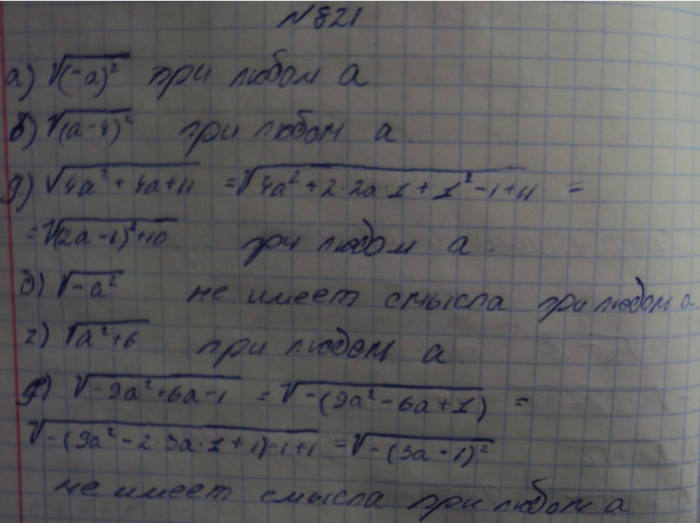 №821
а) √(-a)² при любом a
б) √(a-4)² при любом a.
д) √4a²+4a+11 = √4a²+2·2a·1+1²-1+11 =
= √(2a-1)²+10 при любом a.
в) √-a² не имеет смысла при любом a
г) √a²+6 при любом a.
е) √-9a²+6a-1 = √-(9a²-6a+1) =
√-(9a²-2·3a·1+1)-1+1 = √-(3a-1)²
не имеет смысла при любом a